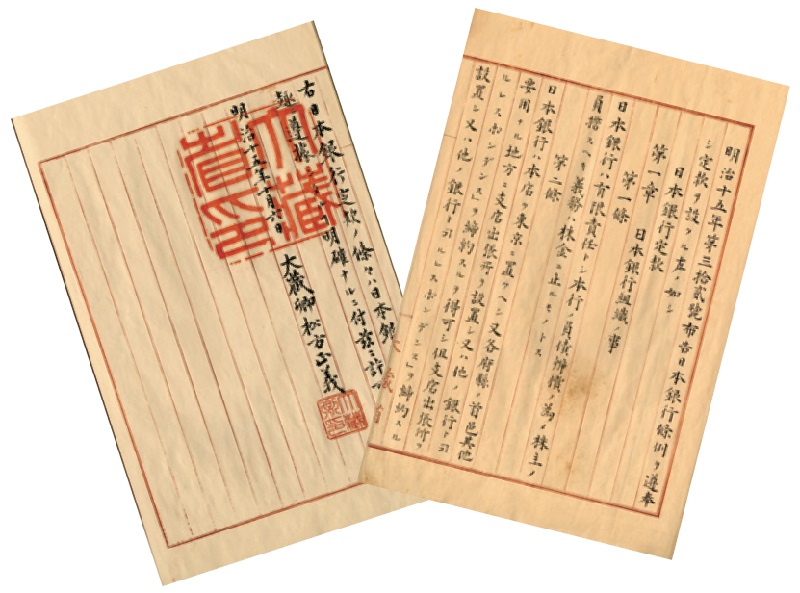 明治十五年第三拾貳號布告日本銀行條例ヲ遵奉
シ定款ヲ設クル左ノ如シ
日本銀行定款
第一章 日本銀行組織ノ事
第一條
日本銀行ハ有限責任トシ本行ノ負債弁償ノ為メ株主ノ
負擔スヘキ義務ハ株金ニ止ルモノトス
第二條
日本銀行ハ本店ヲ東京ニ置クヘシ又各府縣ノ首邑其他
要用ナル地方ニ支店出張所ヲ設置シ又ハ他ノ銀行ト「コ
ルレスポンデンス」ヲ締約スルヲ得可シ但支店出張所ヲ
設置シ又ハ他ノ銀行ト「コルレスポンデンス」ヲ締約スル
右日本銀行定款ノ條々ハ日本銀
遵據シ 明確ナルニ付茲ニ許
明治十五年十月六日
大藏卿松方正義
大藏省印